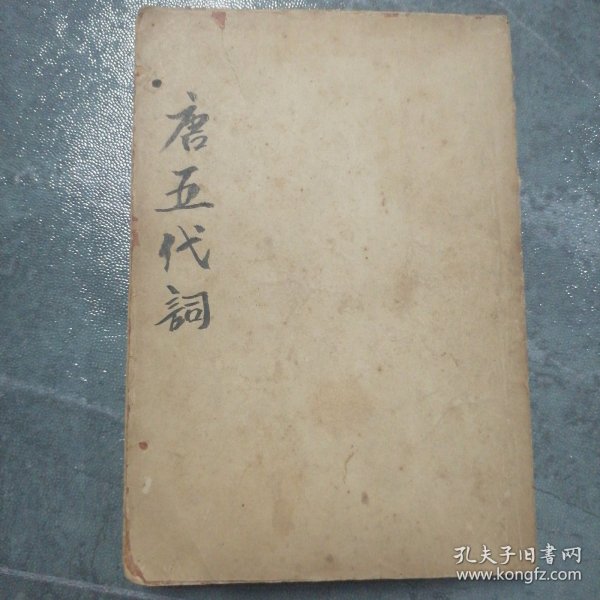 唐五代詞
孔夫子旧書网
www.kongfz.com